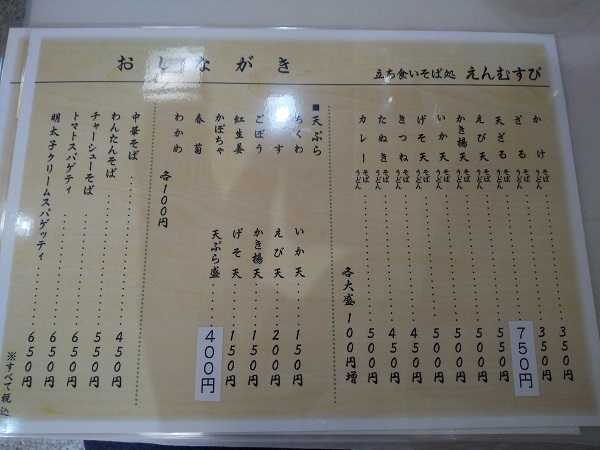 おしながき
立ち食いそば処 えんむすび
かけ そば うどん 350円
ざる そば うどん 350円
天ざる そば うどん 750円
えび天 そば うどん 550円
かき揚天 そば うどん 500円
いか天 そば うどん 500円
げそ天 そば うどん 500円
きつね そば うどん 450円
たぬき そば うどん 450円
カレー そば うどん 500円
各大盛100円増
■天ぷら
ちくわ
なす
ごぼう
紅生姜
かぼちゃ
春菊
わかめ
各100円
いか天 150円
えび天 200円
かき揚天 150円
げそ天 150円
天ぷら盛 400円
中華そば 450円
わんたんそば 550円
チャーシューそば 650円
トマトスパゲティ 650円
明太子クリームスパゲッティ 650円
※すべて税込